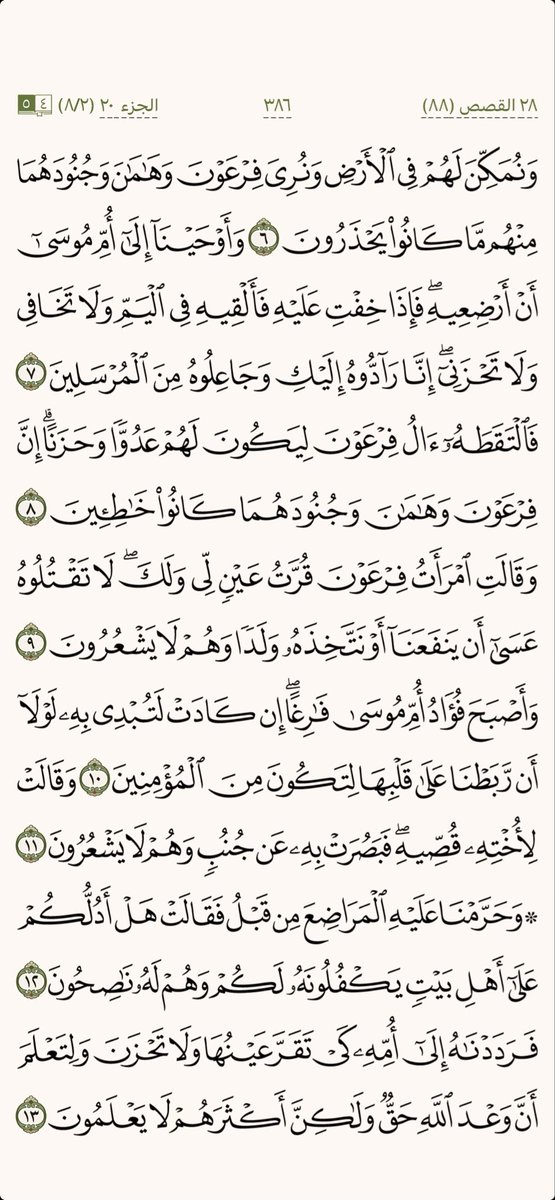 ٢٨ القصص (٨٨) ٣٨٦ الجزء ٢٠ (٨/٢) ٤ ٥
وَنُمَكِّنَ لَهُمۡ فِي ٱلۡأَرۡضِ وَنُرِيَ فِرۡعَوۡنَ وَهَٰمَٰنَ وَجُنُودَهُمَا
مِنۡهُم مَّا كَانُواْ يَحۡذَرُونَ ٦ وَأَوۡحَيۡنَآ إِلَىٰٓ أُمِّ مُوسَىٰٓ
أَنۡ أَرۡضِعِيهِۖ فَإِذَا خِفۡتِ عَلَيۡهِ فَأَلۡقِيهِ فِي ٱلۡيَمِّ وَلَا تَخَافِي
وَلَا تَحۡزَنِيٓۖ إِنَّا رَآدُّوهُ إِلَيۡكِ وَجَاعِلُوهُ مِنَ ٱلۡمُرۡسَلِينَ ٧
فَٱلۡتَقَطَهُۥٓ ءَالُ فِرۡعَوۡنَ لِيَكُونَ لَهُمۡ عَدُوّٗا وَحَزَنًاۗ إِنَّ
فِرۡعَوۡنَ وَهَٰمَٰنَ وَجُنُودَهُمَا كَانُواْ خَٰطِـِٔينَ ٨
وَقَالَتِ ٱمۡرَأَتُ فِرۡعَوۡنَ قُرَّتُ عَيۡنٖ لِّي وَلَكَۖ لَا تَقۡتُلُوهُ
عَسَىٰٓ أَن يَنفَعَنَآ أَوۡ نَتَّخِذَهُۥ وَلَدٗا وَهُمۡ لَا يَشۡعُرُونَ ٩
وَأَصۡبَحَ فُؤَادُ أُمِّ مُوسَىٰ فَٰرِغًاۖ إِن كَادَتۡ لَتُبۡدِي بِهِۦ لَوۡلَآ
أَن رَّبَطۡنَا عَلَىٰ قَلۡبِهَا لِتَكُونَ مِنَ ٱلۡمُؤۡمِنِينَ ١٠ وَقَالَتۡ
لِأُخۡتِهِۦ قُصِّيهِۖ فَبَصُرَتۡ بِهِۦ عَن جُنُبٖ وَهُمۡ لَا يَشۡعُرُونَ ١١
* وَحَرَّمۡنَا عَلَيۡهِ ٱلۡمَرَاضِعَ مِن قَبۡلُ فَقَالَتۡ هَلۡ أَدُلُّكُمۡ
عَلَىٰٓ أَهۡلِ بَيۡتٖ يَكۡفُلُونَهُۥ لَكُمۡ وَهُمۡ لَهُۥ نَٰصِحُونَ ١٢
فَرَدَدۡنَٰهُ إِلَىٰٓ أُمِّهِۦ كَيۡ تَقَرَّ عَيۡنُهَا وَلَا تَحۡزَنَ وَلِتَعۡلَمَ
أَنَّ وَعۡدَ ٱللَّهِ حَقّٞ وَلَٰكِنَّ أَكۡثَرَهُمۡ لَا يَعۡلَمُونَ ١٣